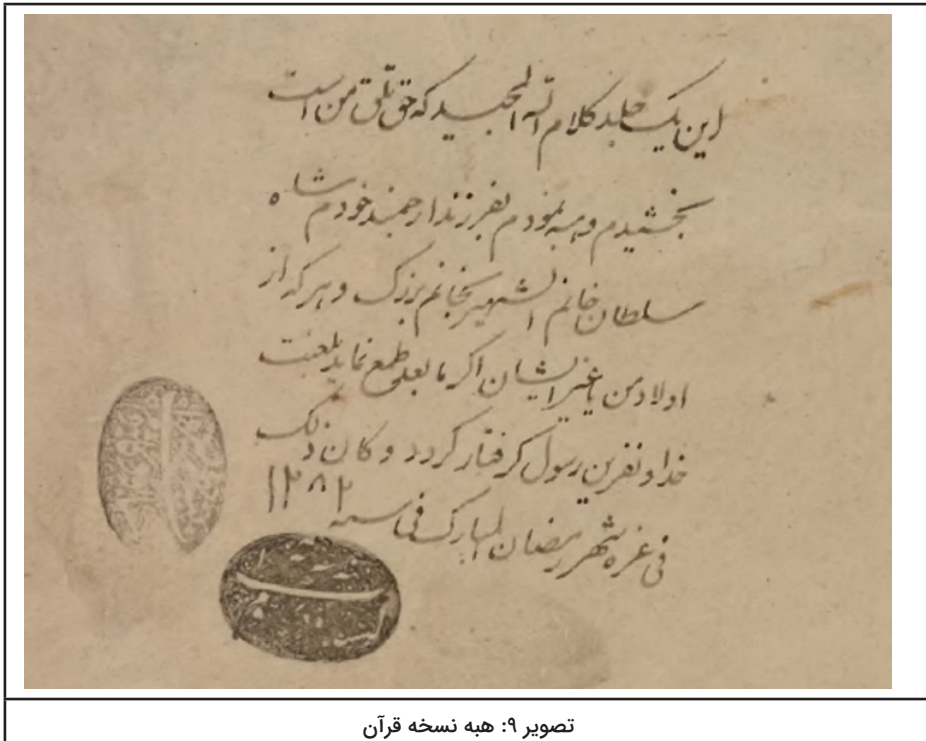 این یک جلد کلام الله المجید که حق تلق من است
بخشیدم و هبه نمودم بفرزند ارجمند خودم شاه
سلطان خانم الشهیر بخانم بزرک و هر که از
اولاد من یا غیر ایشان اکر ما بعد طمع نماید بلعنت
خدا و نفرین رسول کرفتار کردد و کان ذلک
فی غره شهر رمضان المبارک فی سنه ۱۲۸۲
تصویر ۹: هبه نسخه قرآن